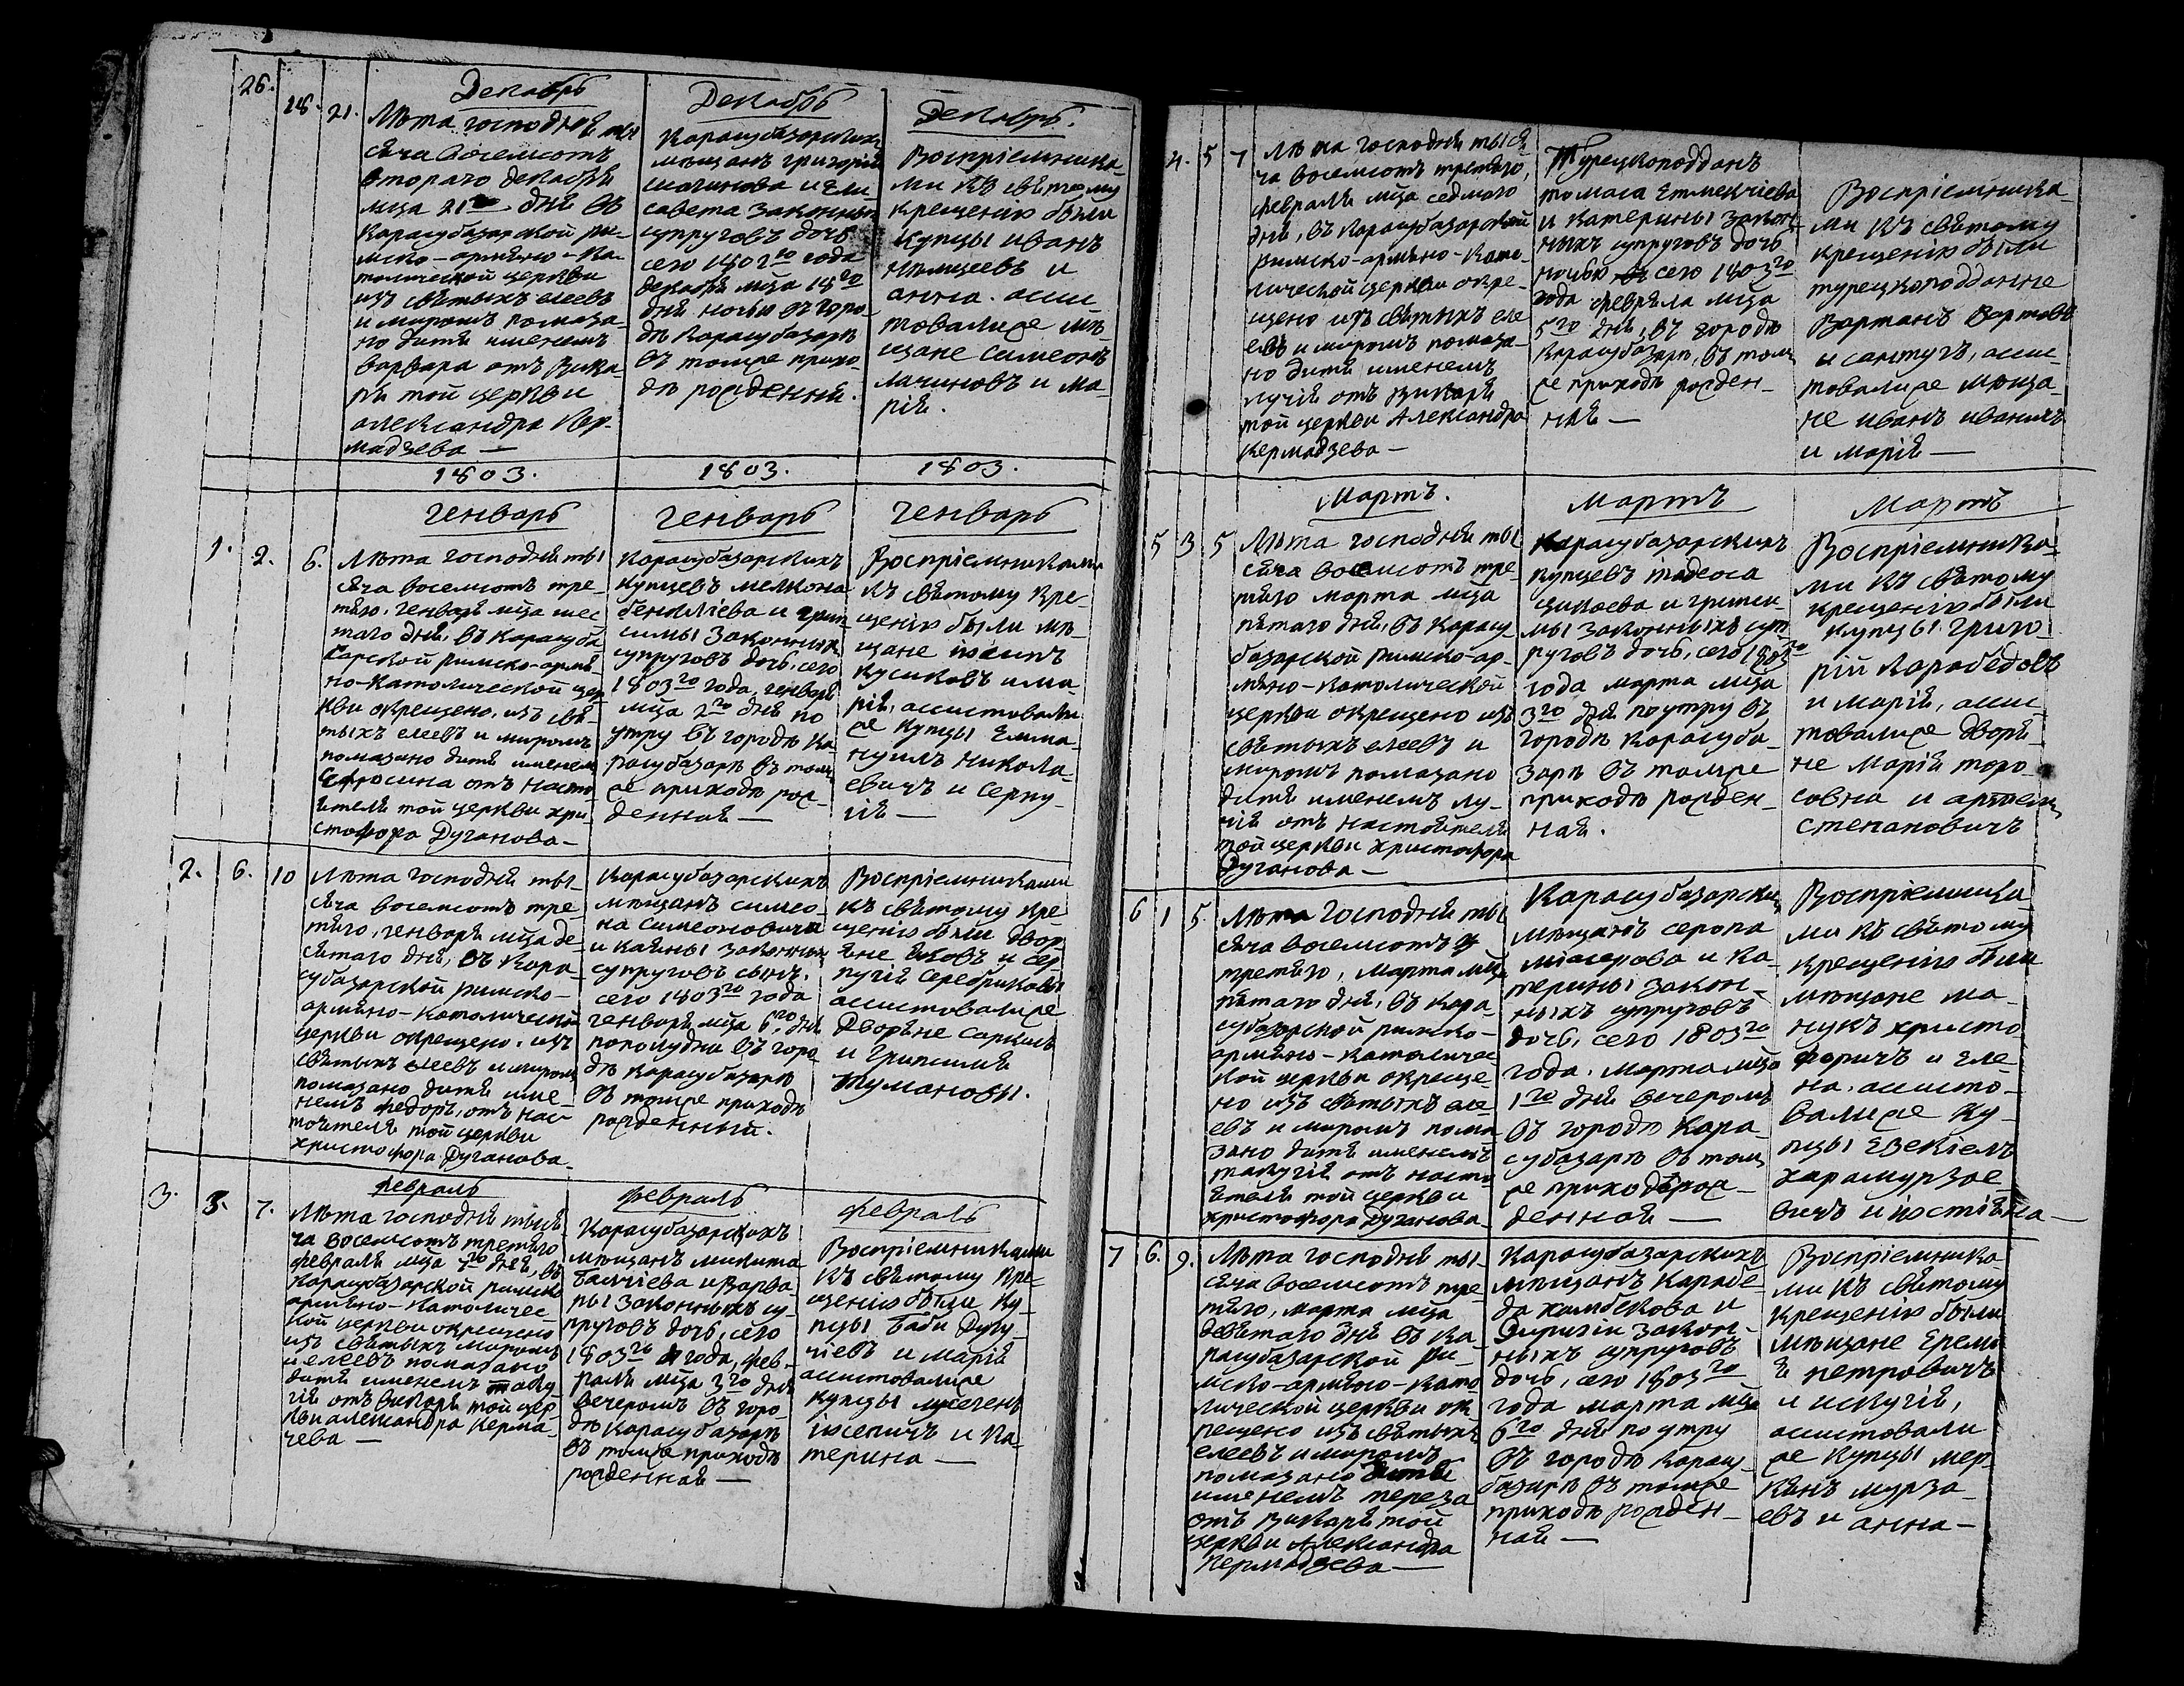 26.
18. 21.
Декабрь
Лѣта господня ты
сяча восемсотъ
втораго декабря
мца 21го дня въ
Карасубазарской ри-
мско-армяно-ка-
толической церкви
изъ святыхъ елеевъ
и миромъ помаза-
но дитя именемъ
варвара отъ Вика-
рія той церкви
александра Кер-
мадзева —
Декабрь
Карасубазарскихъ
мѣщанъ григорія
и Ели
савета законныхъ
супруговъ дочь
сего 1802го года
декабря мца 18го
дня ночью въ горо-
дѣ Карасубазарѣ
въ томже прихо-
дѣ рожденная.
Декабрь.
Воспріемника-
ми къ святому
крещенію были
купцы иванъ
и
анна. асси
товалиже мѣ
щане симеонъ
лачиновъ и ма-
рія.
1803.
1803.
1803.
1. 2. 6.
Генварь
Лѣта господня ты
сяча восемсотъ тре-
тяго, генваря мца шес
таго дня, въ Карасуба
зарской римско-армя
но-католической цер
кви окрещено, изъ свя-
тыхъ елеевъ и миромъ
помазано дитя именем
Ефросина отъ насто-
ятеля той церкви хри
стофора Дуганова-
Генварь
Карасубазарскихъ
купцевъ мелкона
и грип
симы законныхъ
супруговъ дочь, сего
1803го года, генваря
мца 2го дня по
утру въ городѣ Ка
расубазарѣ въ том
же приходѣ рож-
денная —
Генварь
Воспріемниками
къ святому кре-
щенію были мѣ-
щане іосипъ
кусиковъ и ма-
рія, ассистовали
же купцы Емма-
нуилъ никола-
евичъ и серпу-
гія —
2. 6. 10
Лѣта господня ты-
сяча восемсотъ тре-
тяго, генваря мца де-
сятаго дня, въ Кара-
субазарской римско-
армяно-католической
церкви окрещено, изъ
святыхъ елеевъ и миромъ
помазано дитя име-
немъ федоръ, отъ нас-
тоятеля той церкви
христофора Дуганова-
Карасубазарскихъ
мѣщанъ симео-
на симеоновича
и каяны законныхъ
супруговъ сынъ,
сего 1803го года
генваря мца 6го дня
пополудни въ горо
дѣ карасубазарѣ
въ томже приходѣ
рожденный.
Воспріемниками
къ святому кре
щенію были двор
яне яковъ и сер
пугія серебряковы
ассистовалиже
Дворяне саркисъ
и грипсимія
тумановы.
3. 3. 7.
февраль
Лѣта господня тыся
ча восемсотъ третяго
февраля мца 7го дня, въ
Карасубазарской римско
армяно-католичес
кой церкви окрещено
изъ святыхъ миромъ
и елеевъ помазано
дитя именемъ таку
гія отъ викаря той цер-
кви александра Керма-
чева —
февраль
Карасубазарскихъ
мѣщанъ микита
балчіева и Варва
ры законныхъ су-
пруговъ дочь, сего
1803го года, фев-
раля мца 3го дня
вечеромъ въ горо-
дѣ карасубазарѣ
въ томже приходѣ
рожденная —
февраль
Воспріемниками
къ святому кре-
щенію были ку-
пцы баби
и марія
ассистовалиже
купцы
іосепичъ и ка-
терина —
4. 5 7
Лѣта господня тыся
ча восемсотъ третяго,
февраля мца седмаго
дня, въ Карасубазарской
римско-армяно-като-
лической церкви окре-
щено изъ святыхъ еле
евъ и миромъ помаза-
но дитя именемъ
лучія отъ викаря
той церкви Александра
Кермадзева —
Турецкоподданъ
томаса Етмекчіева
и катерины закон-
ныхъ супруговъ дочь
ночью сего 1803го
года февраля мца
5го дня, въ городѣ
карасубазарѣ, въ том
же приходѣ рожден-
ная —
Воспріемника-
ми къ святому
крещенію были
турецкоподданне
Вартанъ Вартовъ
и соптугъ, асси-
товалиже мѣща-
не иванъ
и марія —
5 3 5
Мартъ.
Лѣта господня ты
сяча восемсотъ тре-
тяго марта мца
пятаго дня, въ Карасу-
базарской римско-ар-
мяно-католической
церкви окрещено изъ
святыхъ елеевъ и
миромъ помазано
дитя именемъ лу-
чія отъ настоятеля
той церкви христофора
Дуганова —
Мартъ
Карасубазарскихъ
купцевъ тадеоса
и грипси-
мы законныхъ суп-
руговъ дочь, сего 1803го
года марта мца
3го дня поутру въ
городѣ карасуба-
зарѣ въ томже
приходѣ рожден-
ная.
Мартъ
Воспріемника-
ми къ святому
крещенію были
купцы григо-
рій Карабедовъ
и марія, асси-
товалиже дворя-
не марія торо-
совна и артемъ
степановичъ
6 1 5
Лѣта Господня ты
сяча восемсотъ
третяго, марта мца
пятаго дня, въ Кара-
субазарской римско-
армяно-католичес
кой церкви окреще-
но изъ святыхъ еле-
евъ и миромъ пома
зано дитя именемъ
такугія отъ насто
ятеля той церкви
христофора Дуганова-
Карасубазарских
мѣщанъ серопа
и Ка-
терины закон-
ныхъ супруговъ
дочь, сего 1803го
года, марта мца
1го дня вечеромъ
въ городѣ Кара-
субазарѣ въ том
же приходѣ рож-
денная —
Воспріемника-
ми къ святому
крещенію были
мѣщане ма-
нукъ христо
форичъ и Еле-
на, ассисто-
валиже ку-
пцы Езекіелъ
харамурзае-
вичъ и іюстіяна —
7 6. 9.
Лѣта господня ты
сяча восемсотъ тре-
тяго, марта мца
девятаго дня въ Ка
расубазарской ри-
мско-армяно-като
лической церкви ок
рещено изъ святыхъ
елеевъ и миромъ
помазано дитя
именемъ тереза
отъ викаря той
церкви Александра
Кермадзева —
Карасубазарскихъ
мѣщанъ карабе-
да хамбекова и
закон-
ныхъ супруговъ
дочь, сего 1803го
года марта мца
6го дня поутру
въ городѣ карасу-
базарѣ въ томже
приходѣ рожден-
ная —
Воспріемника-
ми къ святому
крещенію были
мѣщане Ереми
я петровичъ
и искугія,
асситовали
же купцы мер-
канъ мурза-
евъ и анна —